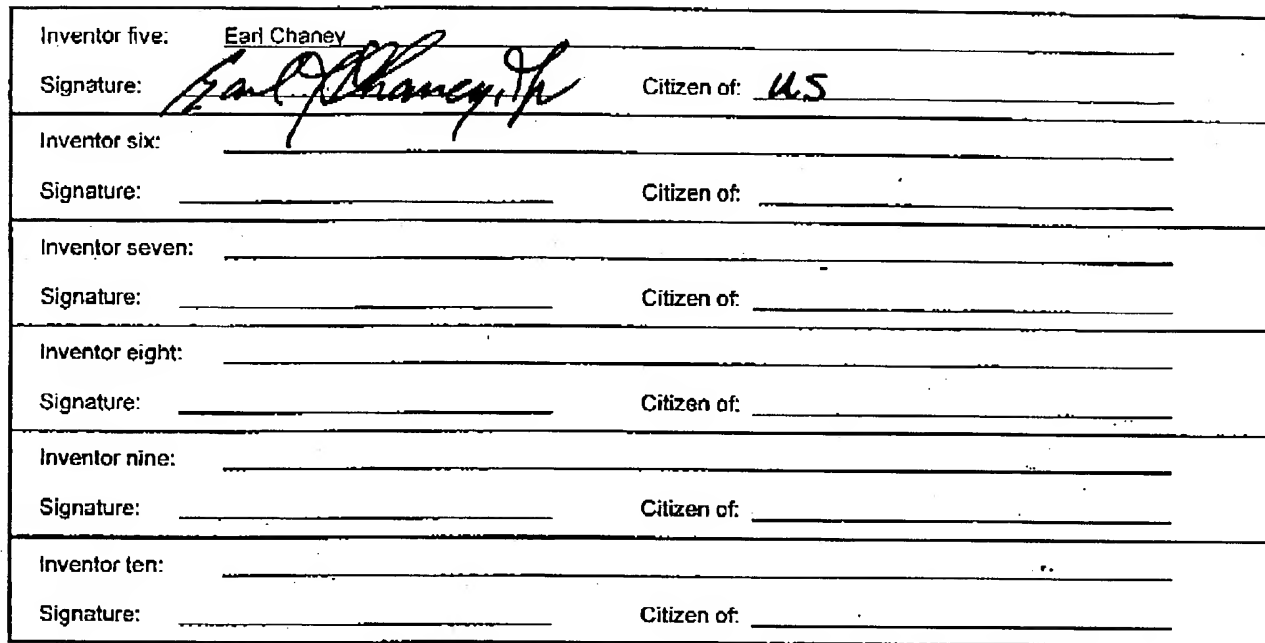 Inventor five: Earl Chaney
Signature: Earl J Chaney, Jr Citizen of: U.S
Inventor six:
Signature: Citizen of:
Inventor seven:
Signature: Citizen of:
Inventor eight:
Signature: Citizen of:
Inventor nine:
Signature: Citizen of:
Inventor ten:
Signature: Citizen of: